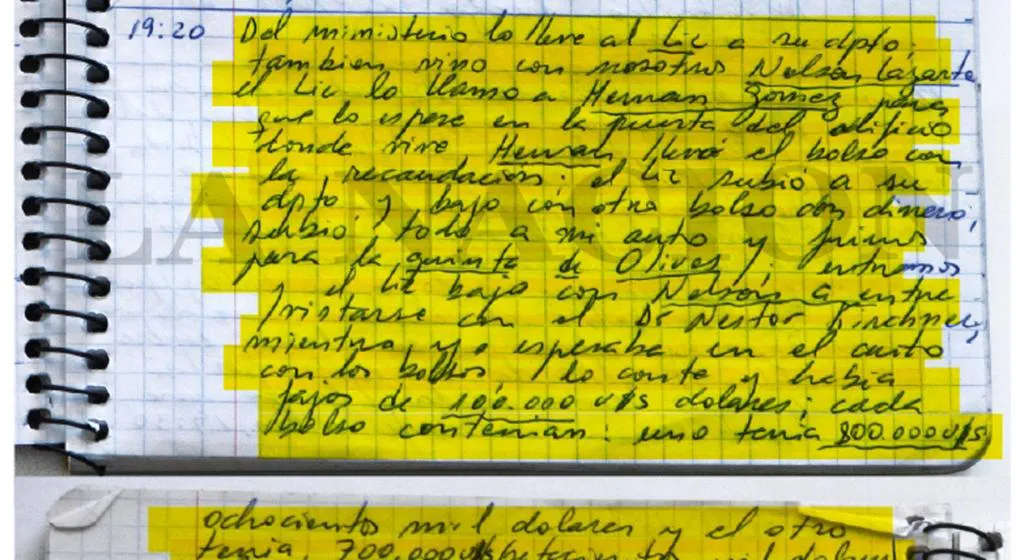 19:20 Del ministerio lo lleve al Lic a su dpto;
tambien vino con nosotros Nelson Lazarte
el Lic lo llamo a Hernan Gomez para
que lo espere en la puerta del edificio
donde vive Hernan llevó el bolso con
la recaudación; el Lic subió a su
dpto y bajo con otro bolso con dinero;
LA NACION
subio todo a mi auto y fuimos
para la quinta de Olivos; entramos
y el Lic bajo con Nelson a entre
vistarse con el Dr Nestor Kirchner,
mientras yo esperaba en el auto
con los bolsos, lo conte y habia
fajos de 100.000 u/s dolares; cada
bolso contenian: uno tenia 800.000 u/s
ochocientos mil dolares y el otro
tenia 700.000 u/s setecientos mil dolares